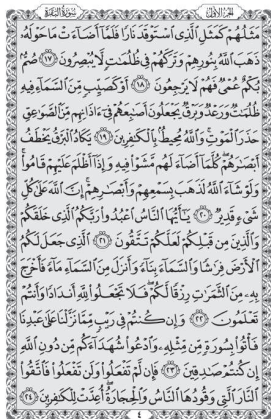 سُورَةُ البَقَرَةِ الجُزْءُ الأَوَّلُ
مَثَلُهُمْ كَمَثَلِ ٱلَّذِى ٱسْتَوْقَدَ نَارًا فَلَمَّآ أَضَآءَتْ مَا حَوْلَهُۥ
ذَهَبَ ٱللَّهُ بِنُورِهِمْ وَتَرَكَهُمْ فِى ظُلُمَٰتٍ لَّا يُبْصِرُونَ ١٧ صُمٌّۢ
بُكْمٌ عُمْىٌ فَهُمْ لَا يَرْجِعُونَ ١٨ أَوْ كَصَيِّبٍ مِّنَ ٱلسَّمَآءِ فِيهِ
ظُلُمَٰتٌ وَرَعْدٌ وَبَرْقٌ يَجْعَلُونَ أَصَٰبِعَهُمْ فِىٓ ءَاذَانِهِم مِّنَ ٱلصَّوَٰعِقِ
حَذَرَ ٱلْمَوْتِ وَٱللَّهُ مُحِيطٌۢ بِٱلْكَٰفِرِينَ ١٩ يَكَادُ ٱلْبَرْقُ يَخْطَفُ
أَبْصَٰرَهُمْ كُلَّمَآ أَضَآءَ لَهُم مَّشَوْا۟ فِيهِ وَإِذَآ أَظْلَمَ عَلَيْهِمْ قَامُوا۟
وَلَوْ شَآءَ ٱللَّهُ لَذَهَبَ بِسَمْعِهِمْ وَأَبْصَٰرِهِمْ إِنَّ ٱللَّهَ عَلَىٰ كُلِّ
شَىْءٍ قَدِيرٌ ٢٠ يَٰٓأَيُّهَا ٱلنَّاسُ ٱعْبُدُوا۟ رَبَّكُمُ ٱلَّذِى خَلَقَكُمْ
وَٱلَّذِينَ مِن قَبْلِكُمْ لَعَلَّكُمْ تَتَّقُونَ ٢١ ٱلَّذِى جَعَلَ لَكُمُ
ٱلْأَرْضَ فِرَٰشًا وَٱلسَّمَآءَ بِنَآءً وَأَنزَلَ مِنَ ٱلسَّمَآءِ مَآءً فَأَخْرَجَ
بِهِۦ مِنَ ٱلثَّمَرَٰتِ رِزْقًا لَّكُمْ فَلَا تَجْعَلُوا۟ لِلَّهِ أَندَادًا وَأَنتُمْ
تَعْلَمُونَ ٢٢ وَإِن كُنتُمْ فِى رَيْبٍ مِّمَّا نَزَّلْنَا عَلَىٰ عَبْدِنَا
فَأْتُوا۟ بِسُورَةٍ مِّن مِّثْلِهِۦ وَٱدْعُوا۟ شُهَدَآءَكُم مِّن دُونِ ٱللَّهِ
إِن كُنتُمْ صَٰدِقِينَ ٢٣ فَإِن لَّمْ تَفْعَلُوا۟ وَلَن تَفْعَلُوا۟ فَٱتَّقُوا۟
ٱلنَّارَ ٱلَّتِى وَقُودُهَا ٱلنَّاسُ وَٱلْحِجَارَةُ أُعِدَّتْ لِلْكَٰفِرِينَ ٢٤
٤